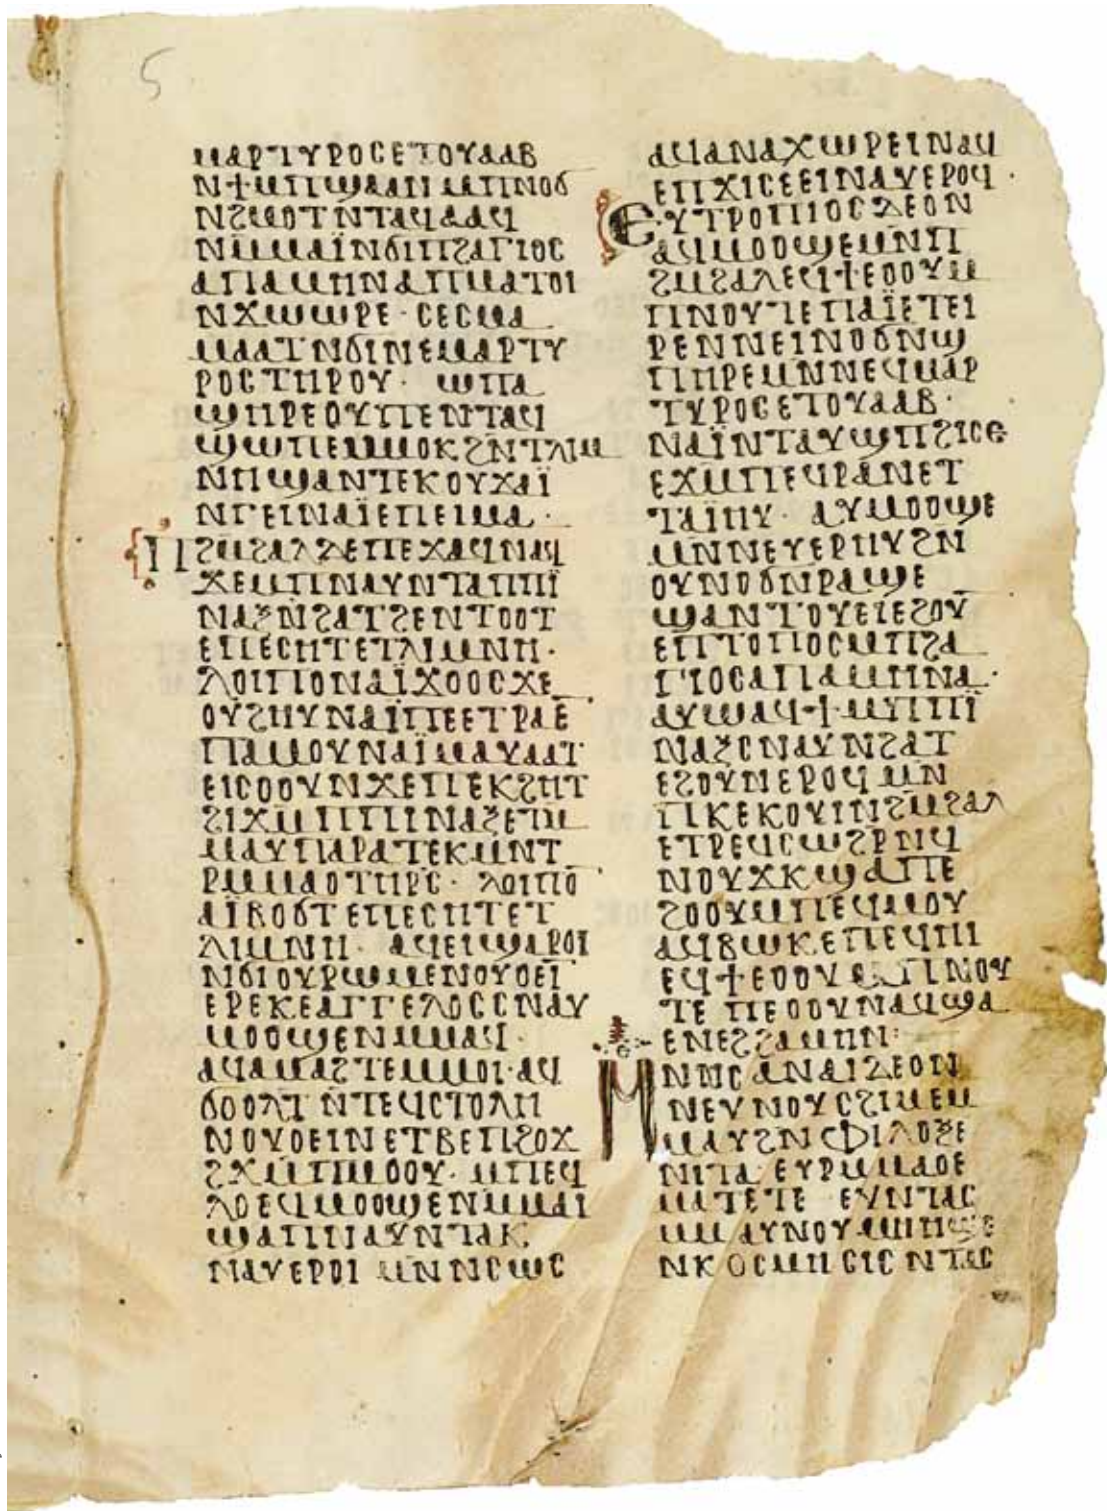 5
ⲙⲁⲣⲧⲩⲣⲟⲥⲉⲧⲟⲩⲁⲁⲃ
ⲛϯⲙⲡϣⲁⲁⲛⲙⲡⲛⲟϭ
ⲛϩⲙⲟⲧⲛⲧⲁϥⲁⲁϥ
ⲛⲙⲙⲁⲓ̈ⲛϭⲓⲡϩⲁⲅⲓⲟⲥ
ⲁⲡⲁⲙⲏⲛⲁⲡⲙⲁⲧⲟⲓ
ⲛϫⲱⲱⲣⲉ· ⲥⲉⲥⲙⲁ
ⲙⲁⲁⲧⲛϭⲓⲛⲉⲙⲁⲣⲧⲩ
ⲣⲟⲥⲧⲏⲣⲟⲩ· ⲱⲡⲁ
ϣⲏⲣⲉⲟⲩⲡⲉⲛⲧⲁϥ
ϣⲱⲡⲉⲙⲙⲟⲕϩⲛⲧⲗⲓⲙ
ⲛⲏϣⲁⲛⲧⲉⲕⲟⲩϫⲁⲓ̈
ⲛⲅⲉⲓⲛⲁⲓ̈ⲉⲡⲉⲓⲙⲁ·
ⲡϩⲙϩⲁⲗⲇⲉⲡⲉϫⲁϥⲛⲁϥ
ϫⲉⲙⲡⲛⲁⲩⲛⲧⲁⲡⲡⲓ
ⲛⲁⲝⲛϩⲁⲧϩⲉⲛⲧⲟⲟⲧ
ⲉⲡⲉⲥⲏⲧⲉⲧⲗⲓⲙⲛⲏ·
ⲗⲟⲓⲡⲟⲛⲁⲓ̈ϫⲟⲟⲥϫⲉ
ⲟⲩϩⲏⲩⲛⲁⲓ̈ⲡⲉⲉⲧⲣⲁⲉ
ⲡⲁⲙⲟⲩⲛⲁⲓ̈ⲙⲁⲩⲁⲁⲧ
ⲉⲓⲥⲟⲟⲩⲛϫⲉⲡⲉⲕϩⲏⲧ
ϩⲓϫⲙⲡⲡⲓⲛⲁⲝⲉⲧⲙ
ⲙⲁⲩⲡⲁⲣⲁⲧⲉⲕⲙⲛⲧ
ⲣⲙⲙⲁⲟⲧⲏⲣⲥ· ⲗⲟⲓⲡⲟ
ⲁⲓ̈ⲃⲟϭⲧⲉⲡⲉⲥⲏⲧⲉⲧ
ⲗⲓⲙⲛⲏ· ⲁϥⲉⲓϣⲁⲣⲟⲓ̈
ⲛϭⲓⲟⲩⲣⲱⲙⲉⲛⲟⲩⲟⲉⲓ
ⲉⲣⲉⲕⲉⲁⲅⲅⲉⲗⲟⲥⲥⲛⲁⲩ
ⲙⲟⲟϣⲉⲛⲙⲙⲁϥ·
ⲁϥⲁⲙⲁϩⲧⲉⲙⲙⲟⲓ·ⲁϥ
ϭⲟⲟⲗⲧⲛⲧⲉϥⲥⲧⲟⲗⲏ
ⲛⲟⲩⲟⲉⲓⲛⲉⲧⲃⲉⲡϩⲟϫ
ϩϫⲙⲡⲙⲟⲟⲩ· ⲙⲡⲉϥ
ⲗⲟⲉϥⲙⲟⲟϣⲉⲛⲙⲙⲁⲓ
ϣⲁⲡⲛⲁⲩⲛⲧⲁⲕ
ⲛⲁⲩⲉⲣⲟⲓ ⲙⲛⲛⲥⲱⲥ
ⲁϥⲁⲛⲁⲭⲱⲣⲉⲓⲛⲁϥ
ⲉⲡϫⲓⲥⲉⲉⲓⲛⲁⲩⲉⲣⲟϥ·
ⲉⲩⲧⲣⲟⲡⲓⲟⲥⲇⲉⲟⲛ
ⲁϥⲙⲟⲟϣⲉⲙⲛⲡ
ϩⲙϩⲁⲗⲉϥϯⲉⲟⲟⲩⲙ
ⲡⲛⲟⲩⲧⲉⲡⲁⲓ̈ⲉⲧⲉⲓ
ⲣⲉⲛⲛⲉⲓⲛⲟϭⲛϣ
ⲡⲏⲣⲉⲙⲛⲛⲉϥⲙⲁⲣ
ⲧⲩⲣⲟⲥⲉⲧⲟⲩⲁⲁⲃ·
ⲛⲁⲓ̈ⲛⲧⲁⲩϣⲡϩⲓⲥⲉ
ⲉϫⲙⲡⲉϥⲣⲁⲛⲉⲧ
ⲧⲁⲓ̈ⲏⲩ· ⲁⲩⲙⲟⲟϣⲉ
ⲙⲛⲛⲉⲩⲉⲣⲏⲩϩⲛ
ⲟⲩⲛⲟϭⲛⲣⲁϣⲉ
ϣⲁⲛⲧⲟⲩⲉⲓⲉϩⲟⲩ
ⲉⲡⲧⲟⲡⲟⲥⲙⲡϩⲁ
ⲅⲓⲟⲥⲁⲡⲁⲙⲏⲛⲁ·
ⲁⲩⲱⲁϥϯⲙⲡⲡⲓ
ⲛⲁⲝⲥⲛⲁⲩⲛϩⲁⲧ
ⲉϩⲟⲩⲛⲉⲣⲟϥⲙⲛ
ⲡⲕⲉⲕⲟⲩⲓⲛϩⲙϩⲁⲗ
ⲉⲧⲣⲉϥⲥⲱϩⲣⲛϥ
ⲛⲟⲩϫⲕϣⲁⲡⲉ
ϩⲟⲟⲩⲙⲡⲉϥⲙⲟⲩ
ⲁϥⲃⲱⲕⲉⲡⲉϥⲏⲓ
ⲉϥϯⲉⲟⲟⲩⲙⲡⲛⲟⲩ
ⲧⲉ ⲡⲉⲟⲟⲩⲛⲁϥϣⲁ
ⲉⲛⲉϩϩⲁⲙⲏⲛ:
ⲙⲛⲛⲥⲁⲛⲁⲓⲇⲉⲟⲛ
ⲛⲉⲩⲛⲟⲩⲥϩⲓⲙⲉⲙ
ⲙⲁⲩϩⲛⲫⲓⲗⲟⲝⲉ
ⲛⲓⲧⲁ ⲉⲩⲣⲙⲙⲁⲟⲉ
ⲙⲁⲧⲉⲧⲉ ⲉⲩⲛⲧⲁⲥ
ⲙⲙⲁⲩⲛⲟⲩⲙⲏⲏϣⲉ
ⲛⲕⲟⲥⲙⲏⲥⲓⲥ ⲛⲧⲁⲥ